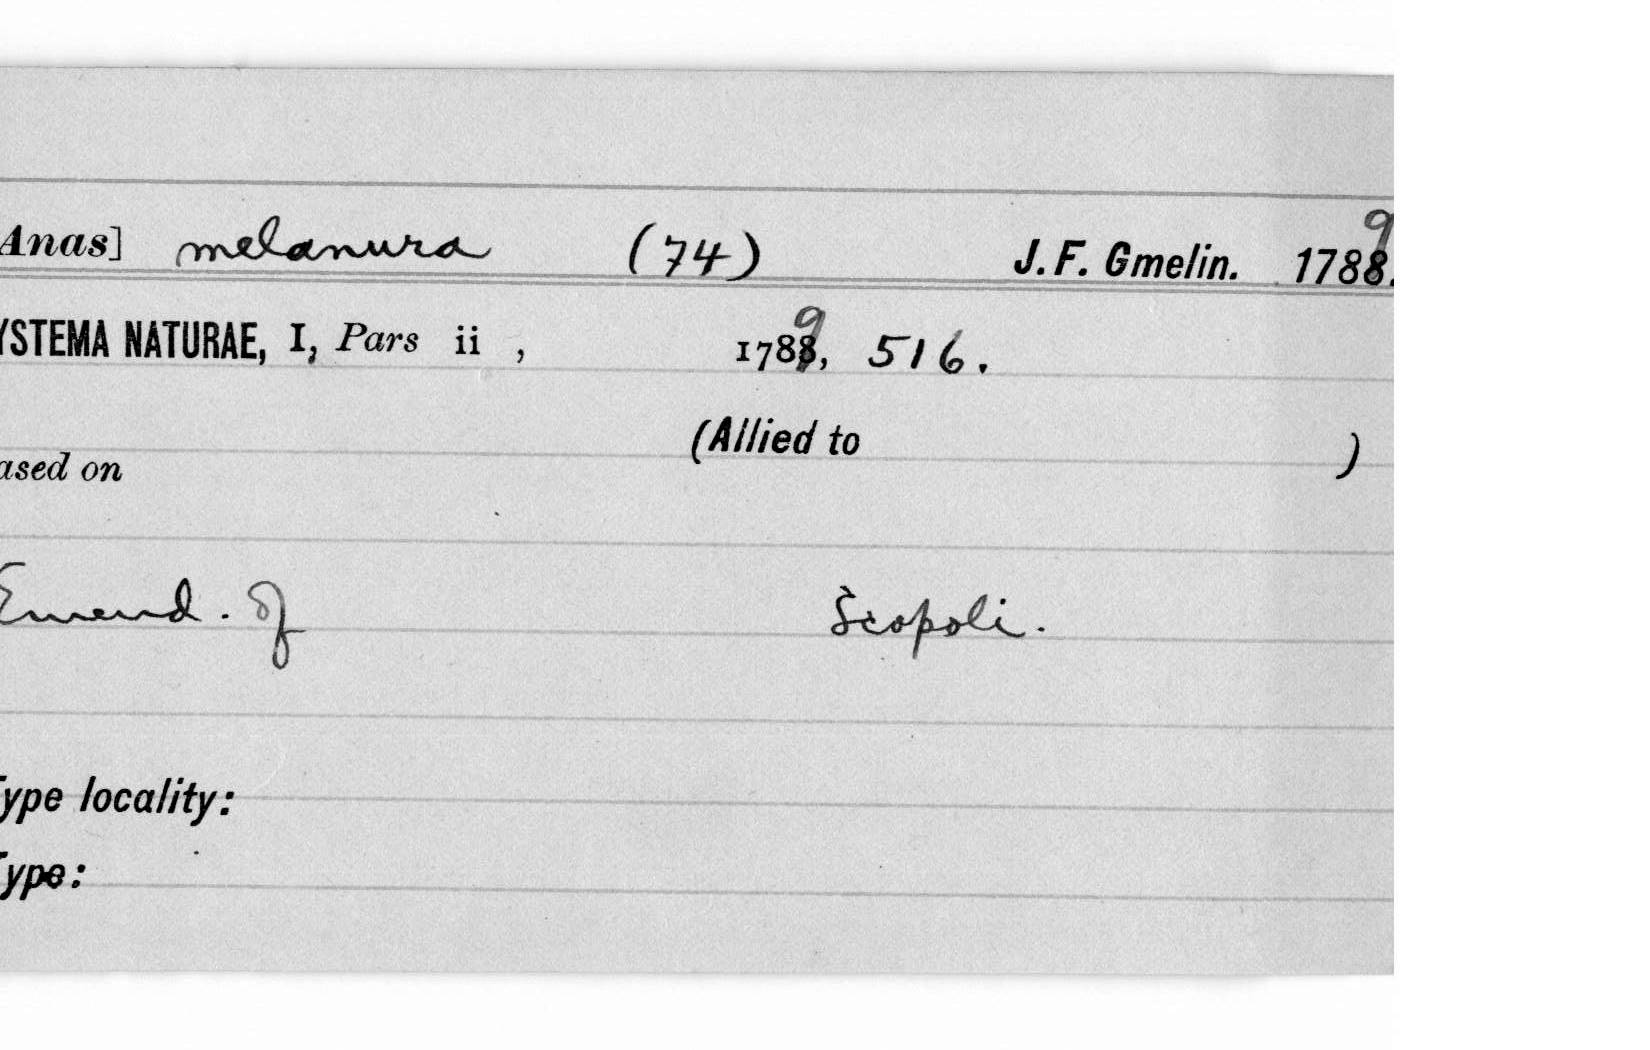 Anas] melanura (74) J. F. Gmelin. 1789.
YSTEMA NATURAE, I, Pars ii , 1789, 516.
(Allied to )
ased on
Emend. of Scopoli.
Type locality:
Type: